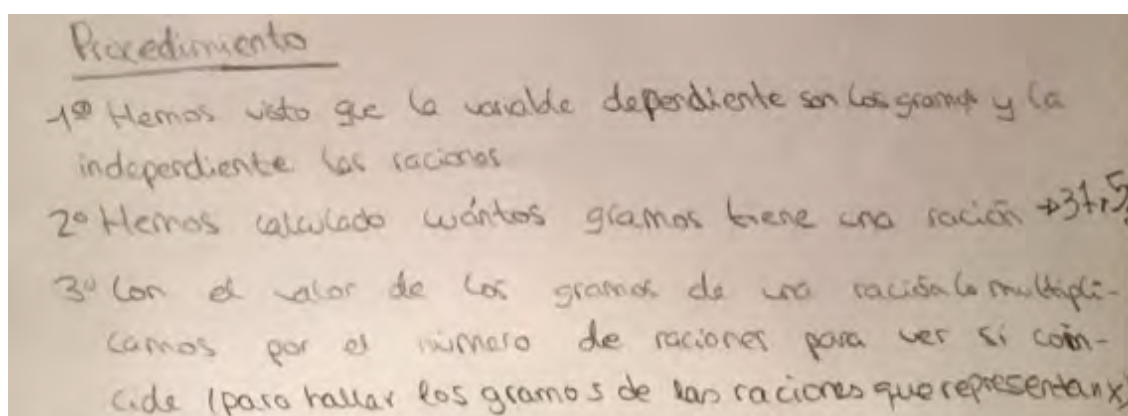 Procedimiento
1º Hemos visto que la variable dependiente son los gramos y la
independiente las raciones
2º Hemos calculado cuántos gramos tiene una ración → 37,5
3º Con el valor de los gramos de una ración lo multipli-
camos por el número de raciones para ver si coin-
cide (para hallar los gramos de las raciones que representan x)